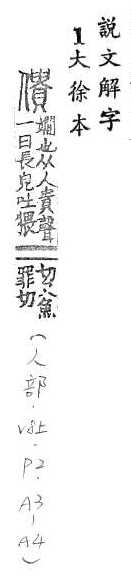 說文解字
1大徐本
儨嫺也从人貴聲
一曰長皃吐猥
切又魚
罪切
(人部.V8上.P2.A3-A4)